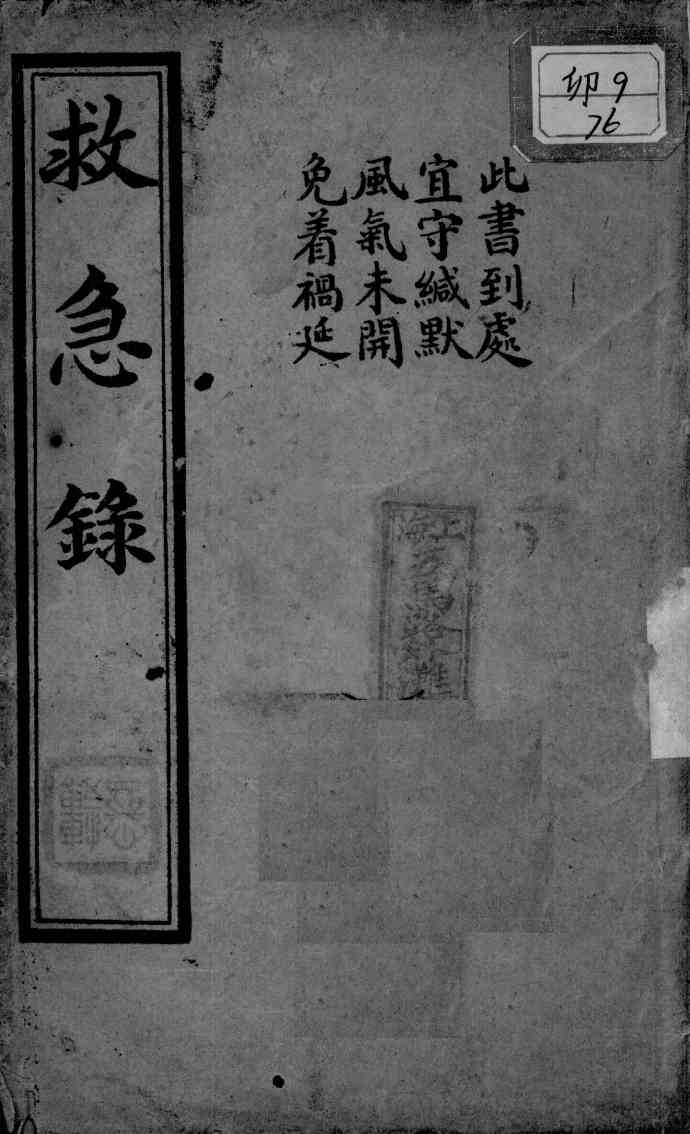 卯9
76
此書到處
宜守緘默
風氣未開
免着禍延
救急錄
上海